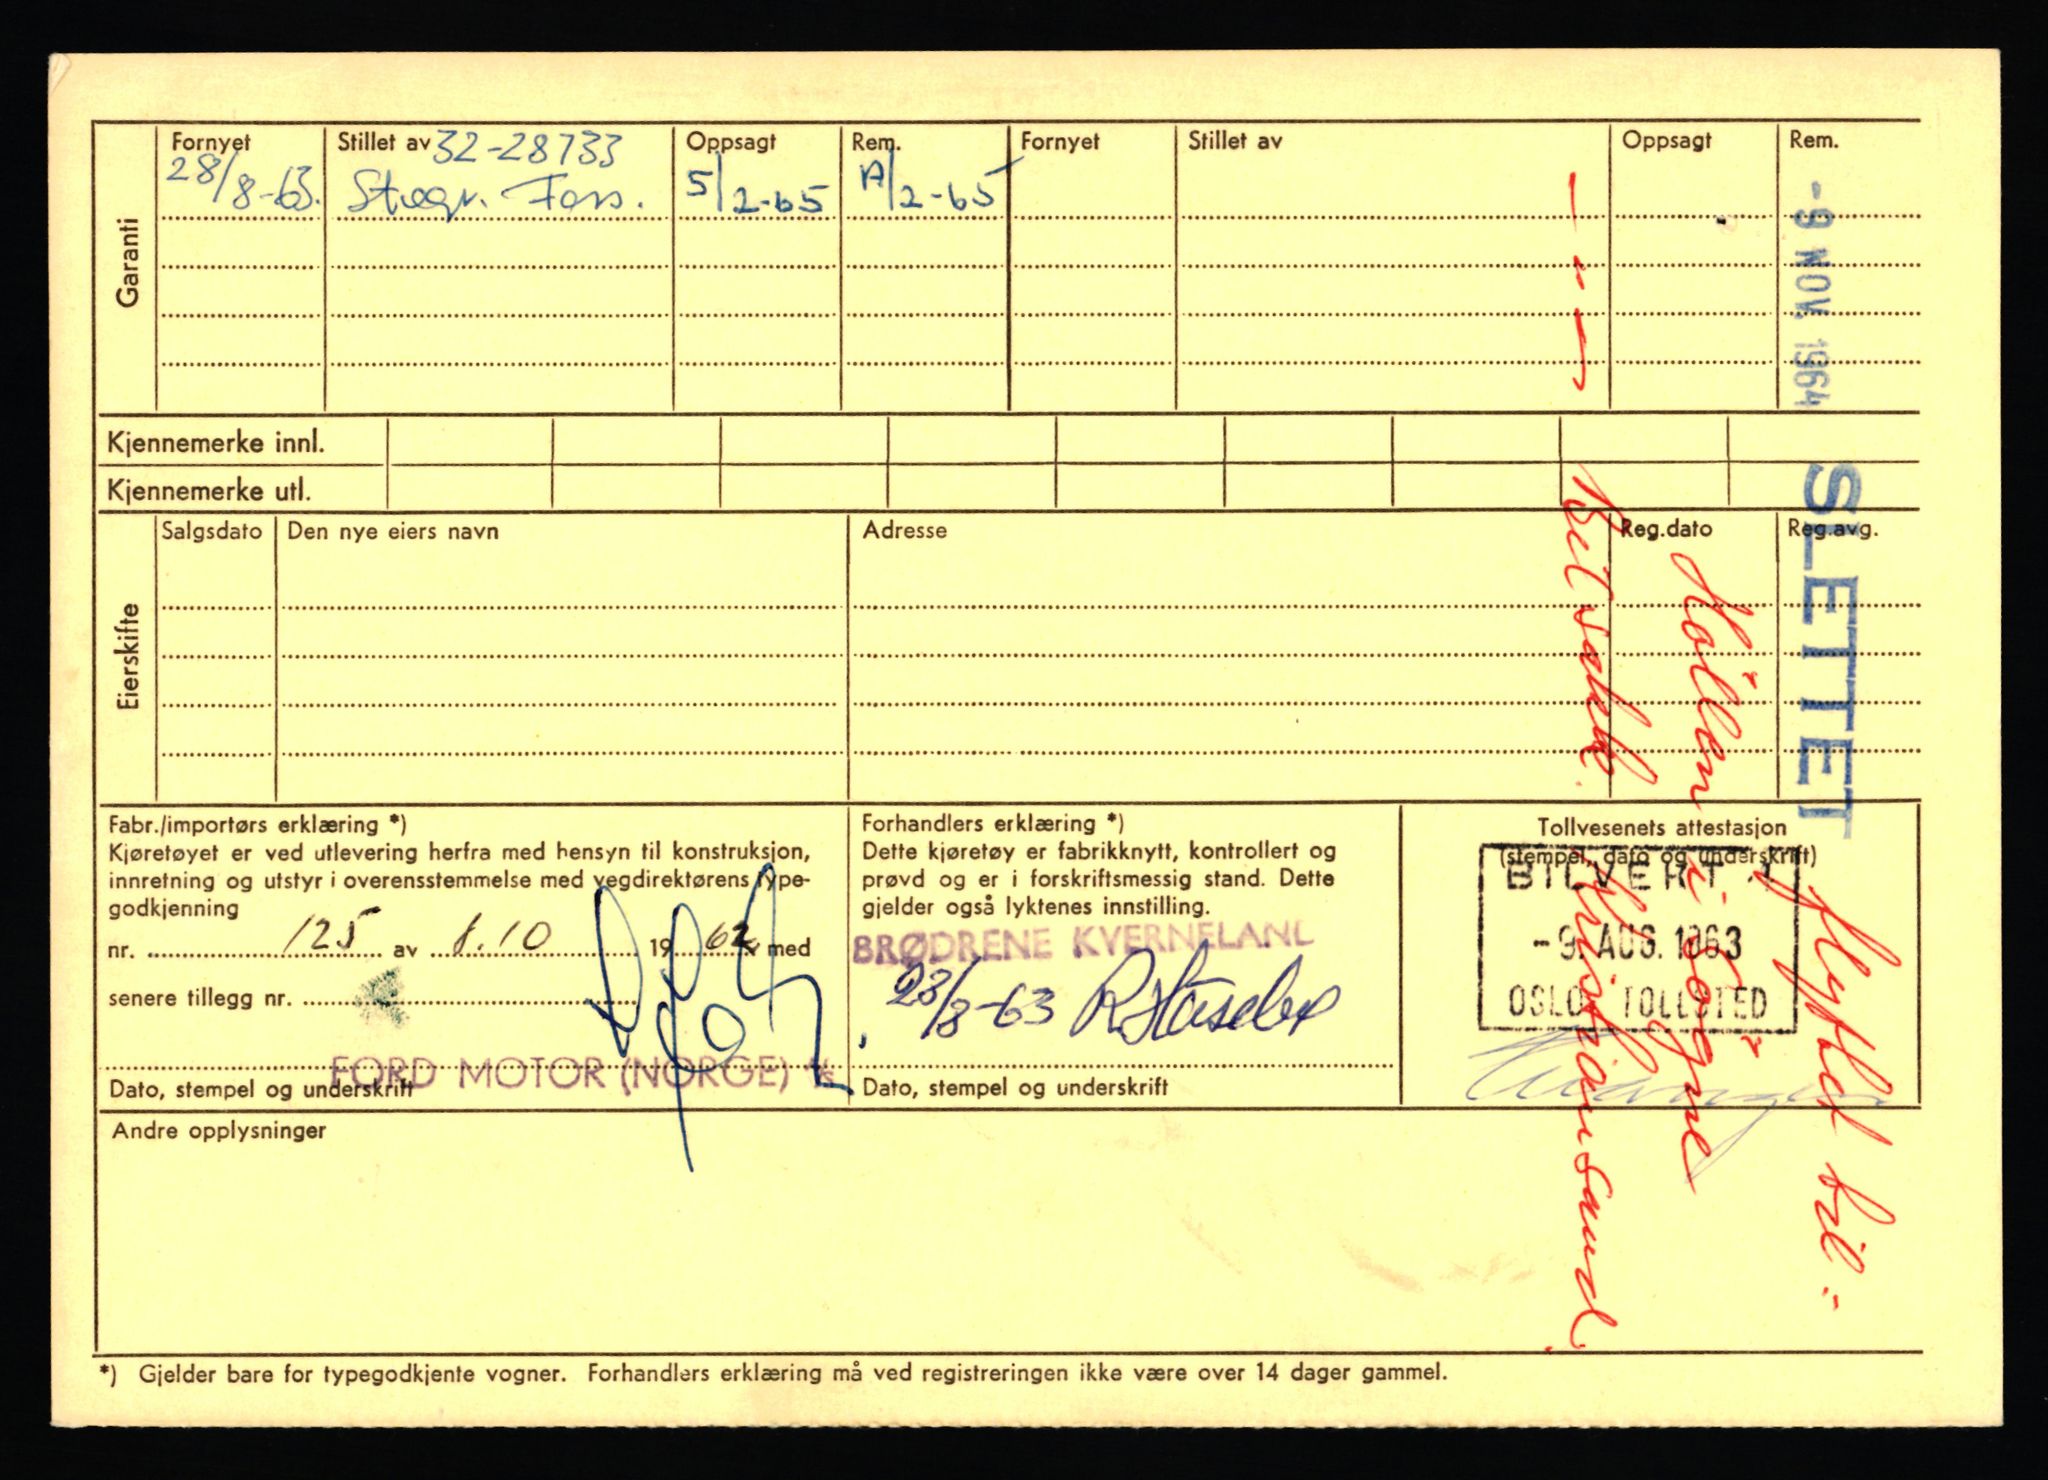 Garanti
Fornyet Stillet av Oppsagt Rem. Fornyet Stillet av Oppsagt Rem.
32-28733
28/8-63. Storgr. Forss. 5/2-65 A/2-65
- 9 NOV. 1964
SLETTET
Kjennemerke innl.
Kjennemerke utl.
Eierskifte
Salgsdato Den nye eiers navn Adresse Reg.dato Reg.avg.
flyttet til:
Höllen i Sögne
Kristiansand
Fabr./importørs erklæring *)
Kjøretøyet er ved utlevering herfra med hensyn til konstruksjon,
innretning og utstyr i overensstemmelse med vegdirektørens type-
godkjenning
nr. 125 av 1.10 1962 med
senere tillegg nr.
FORD MOTOR (NORGE) A/S
Dato, stempel og underskrift
Forhandlers erklæring *)
Dette kjøretøy er fabrikknytt, kontrollert og
prøvd og er i forskriftsmessig stand. Dette
gjelder også lyktenes innstilling.
BRØDRENE KVERNELAND
23/8-63
Dato, stempel og underskrift
Tollvesenets attestasjon
(stempel, dato og underskrift)
BILVERT 1
-9. AUG. 1963
OSLO TOLLSTED
Andre opplysninger
*) Gjelder bare for typegodkjente vogner. Forhandlers erklæring må ved registreringen ikke være over 14 dager gammel.